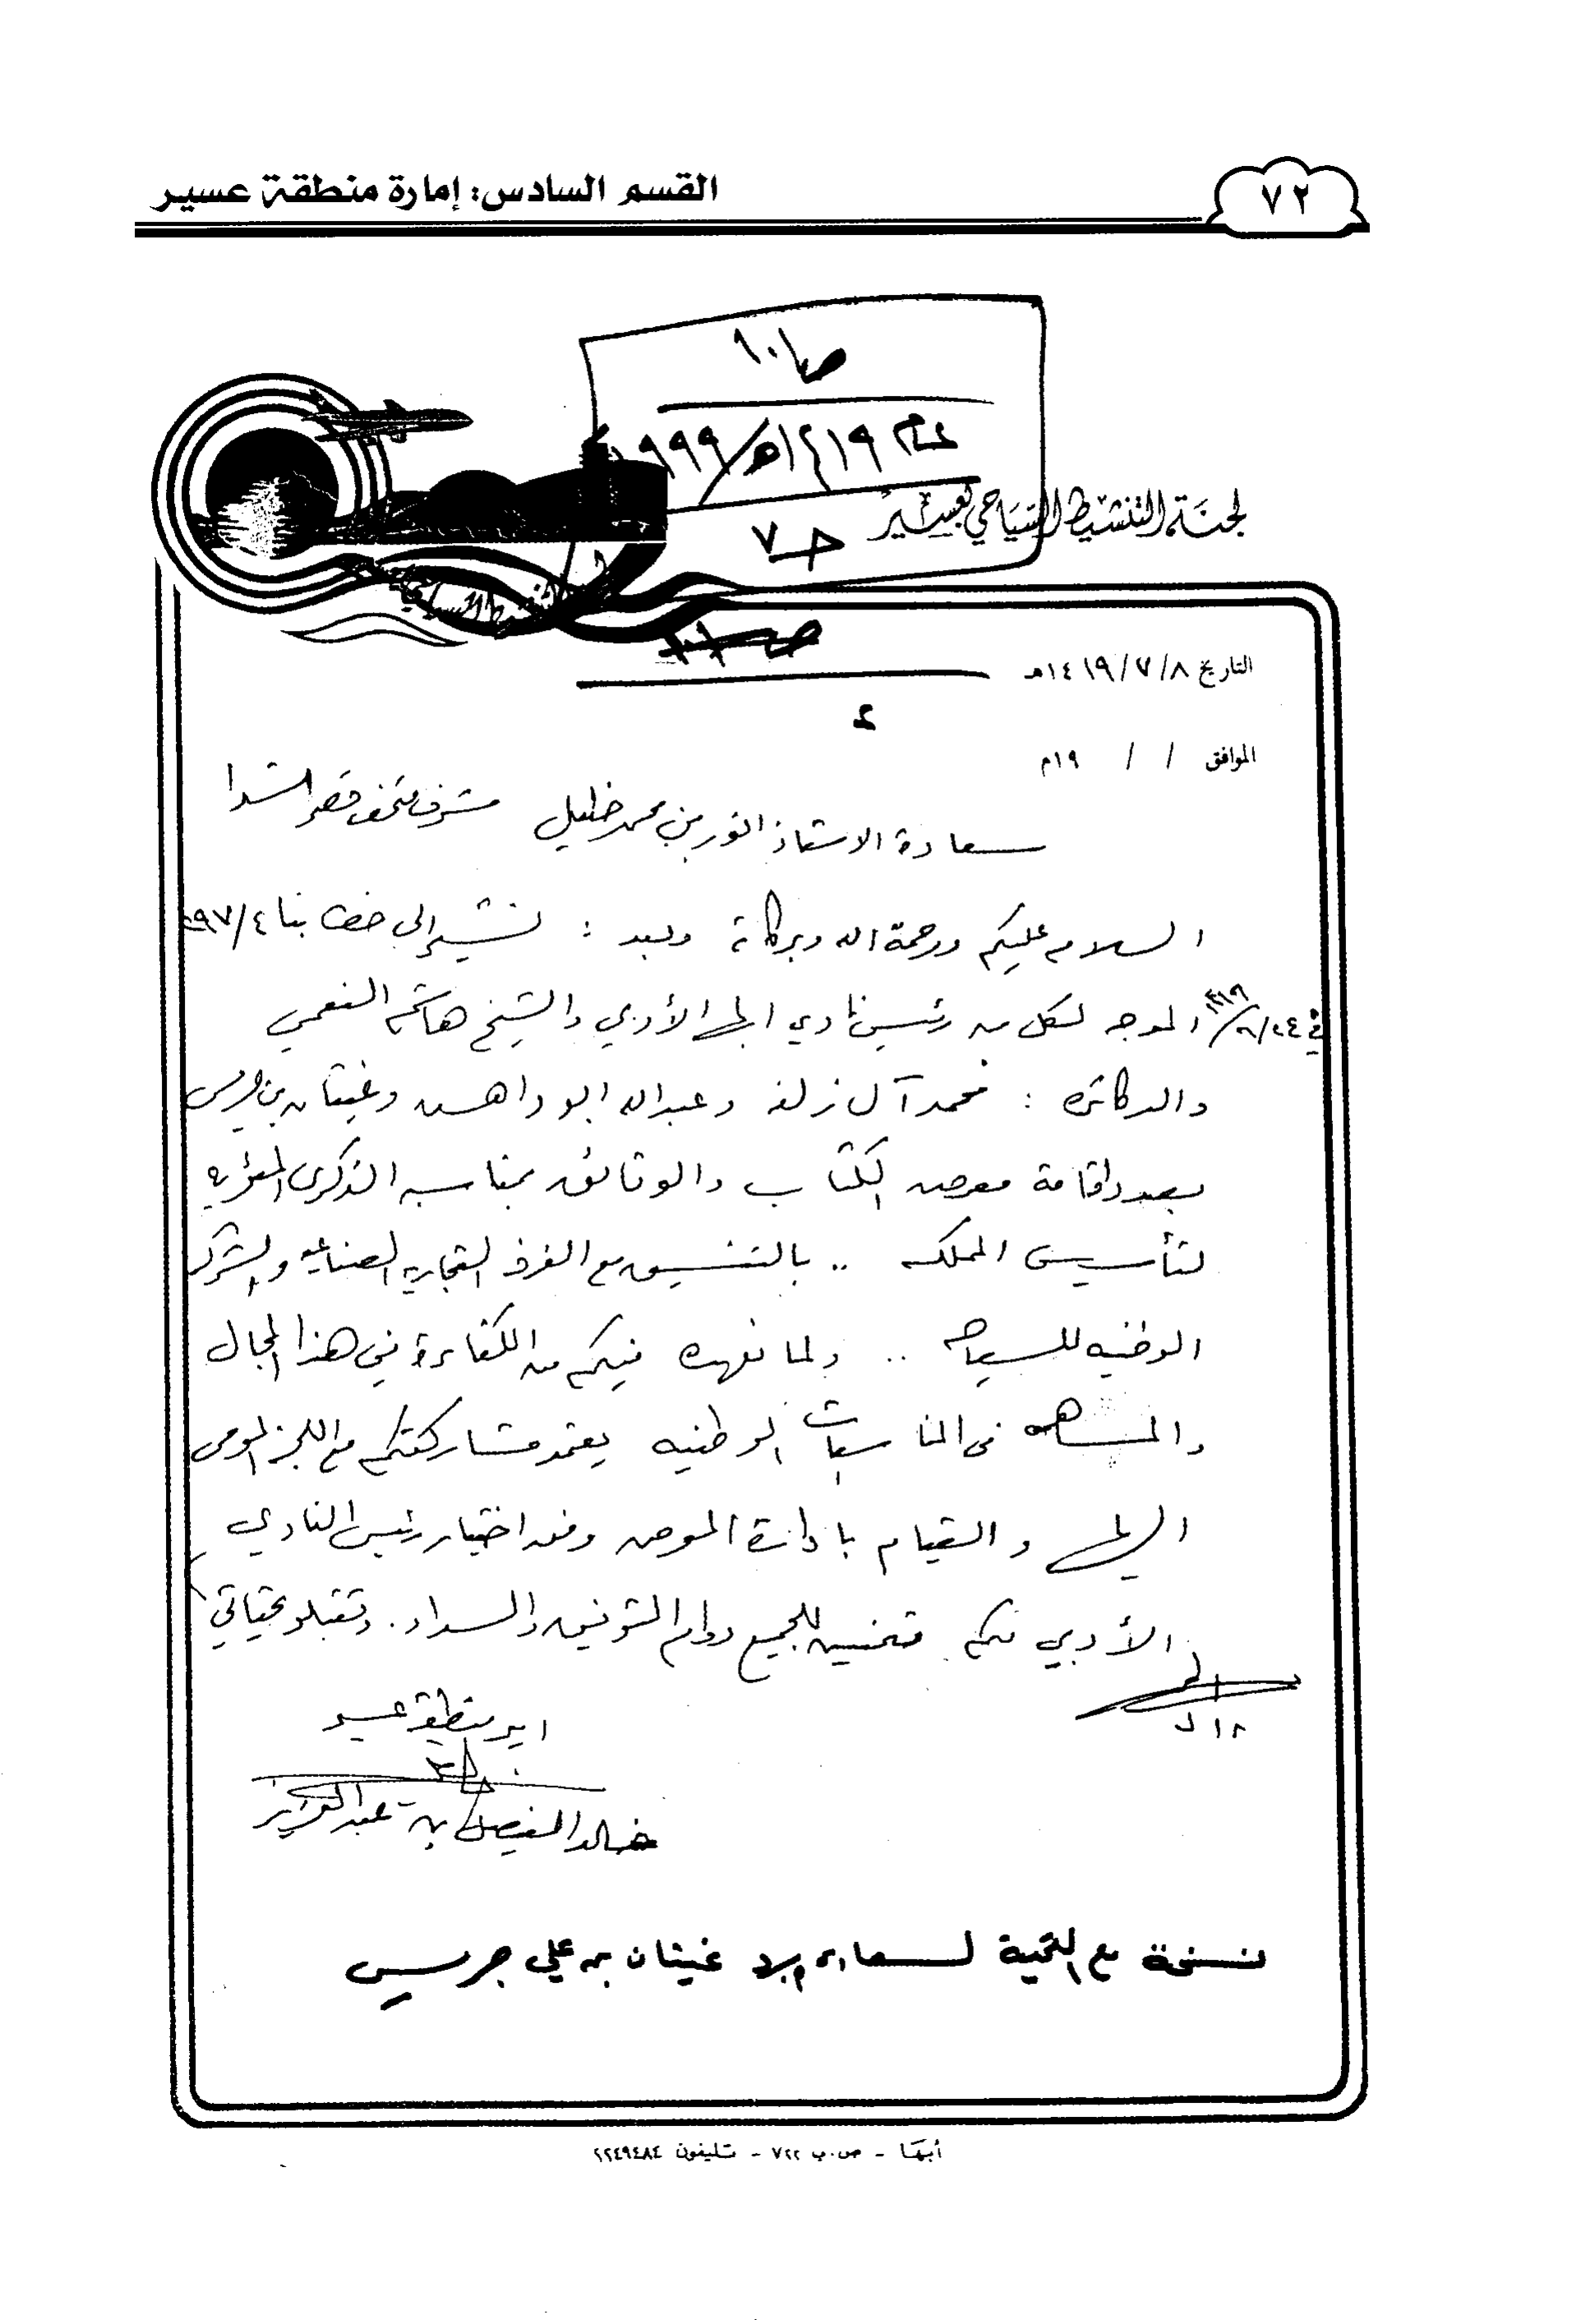 ٧٢
القسم السادس: إمارة منطقة عسير
ص/١٠
عام ١٤١٩هـ/١٩٩٩م
حـ٧
لجنة التنشيط السياحي بعسير
التاريخ ٨/٧/١٤١٩هـ
الموافق / / ١٩م
سعادة الاستاذ انور بن محمد خليل مشرف متحف قصر شدا
السلام عليكم ورحمة الله وبركاته وبعد : نشير إلى خطابنا ٤/٩٧
في الموجه لكل من رئيس نادي ابها الأدبي والشيخ هاشم النعمي
والدكاتره : محمد آل زلفه وعبدالله ابو داهش وغيثان بن جريس
بصدد اقامة معرض الكتاب والوثائق بمناسبه الذكرى المئويه
لتأسيس المملكه .. بالتنسيق مع الغرفه التجاريه الصناعيه والشركه
الوطنيه للسياحه .. ولما نعهده فيكم من الكفاءة في هذا المجال
والمساهمه في المناسبات الوطنيه يعتمد مشاركتكم مع اللجنه المومى
اليها والقيام بادارة المعرض وفق اختيار رئيس النادي
الأدبي لكم متمنين للجميع دوام التوفيق والسداد. وتقبلو تحياتي
امير منطقة عسير
خالد الفيصل بن عبدالعزيز
نسخة مع التحية لسعادة غيثان بن علي جريس
أبها - ص.ب ٧٢٢ - تليفون ٢٢٤٩٤٨٤